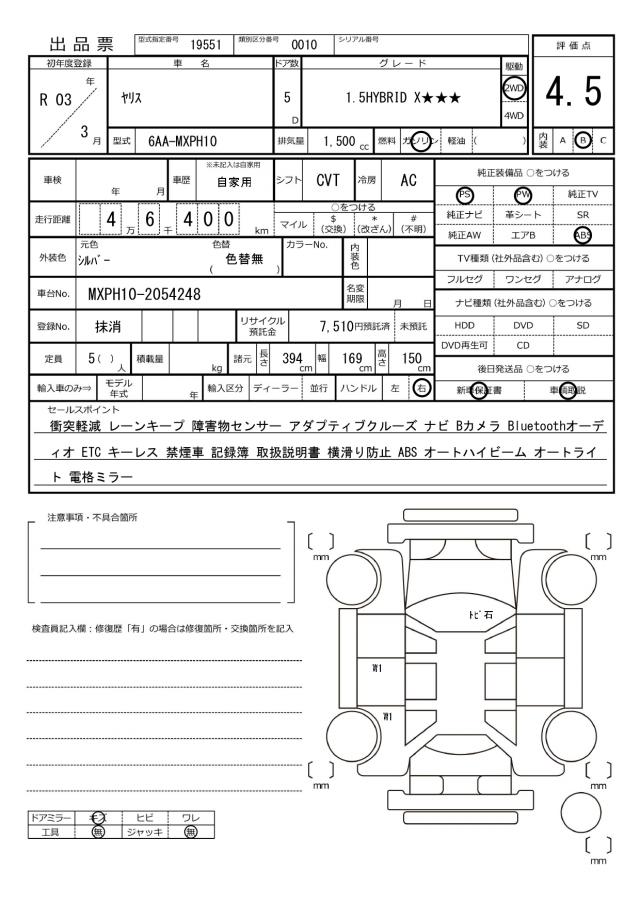 出品票 型式指定番号 19551 類別区分番号 0010 シリアル番号
評価点
4.5
内装 A B C
初年度登録 車名 ドア数 グレード 駆動
R 03 年 3 月 ﾔﾘｽ 5 D 1.5HYBRID X★★★ 2WD 4WD
型式 6AA-MXPH10 排気量 1,500 cc 燃料 ガソリン 軽油 ( )
車検 年 月 車歴 ※未記入は自家用 自家用 シフト CVT 冷房 AC
走行距離 4 万 6 千 4 0 0 km
○をつける
マイル $(交換) *(改ざん) #(不明)
外装色 元色 ｼﾙﾊﾞｰ 色替 ( 色替無 ) カラーNo. 内装色
車台No. MXPH10-2054248 名変期限 月 日
登録No. 抹消 リサイクル預託金 7,510円預託済 未預託
定員 5 ( ) 人 積載量 kg 諸元 長さ 394 cm 幅 169 cm 高さ 150 cm
輸入車のみ⇒ モデル年式 年 輸入区分 ディーラー 並行 ハンドル 左 右
純正装備品 ○をつける
PS PW 純正TV
純正ナビ 革シート SR
純正AW エアB ABS
TV種類(社外品含む) ○をつける
フルセグ ワンセグ アナログ
ナビ種類(社外品含む) ○をつける
HDD DVD SD
DVD再生可 CD
後日発送品 ○をつける
新車保証書 車輌取説
セールスポイント
衝突軽減 レーンキープ 障害物センサー アダプティブクルーズ ナビ Bカメラ Bluetoothオーデ
ィオ ETC キーレス 禁煙車 記録簿 取扱説明書 横滑り防止 ABS オートハイビーム オートライ
ト 電格ミラー
注意事項・不具合箇所
検査員記入欄：修復歴「有」の場合は修復箇所・交換箇所を記入
mm
mm
ﾄﾋﾞ石
mm
mm
mm
ドアミラー キズ ヒビ ワレ
工具 無 ジャッキ 無